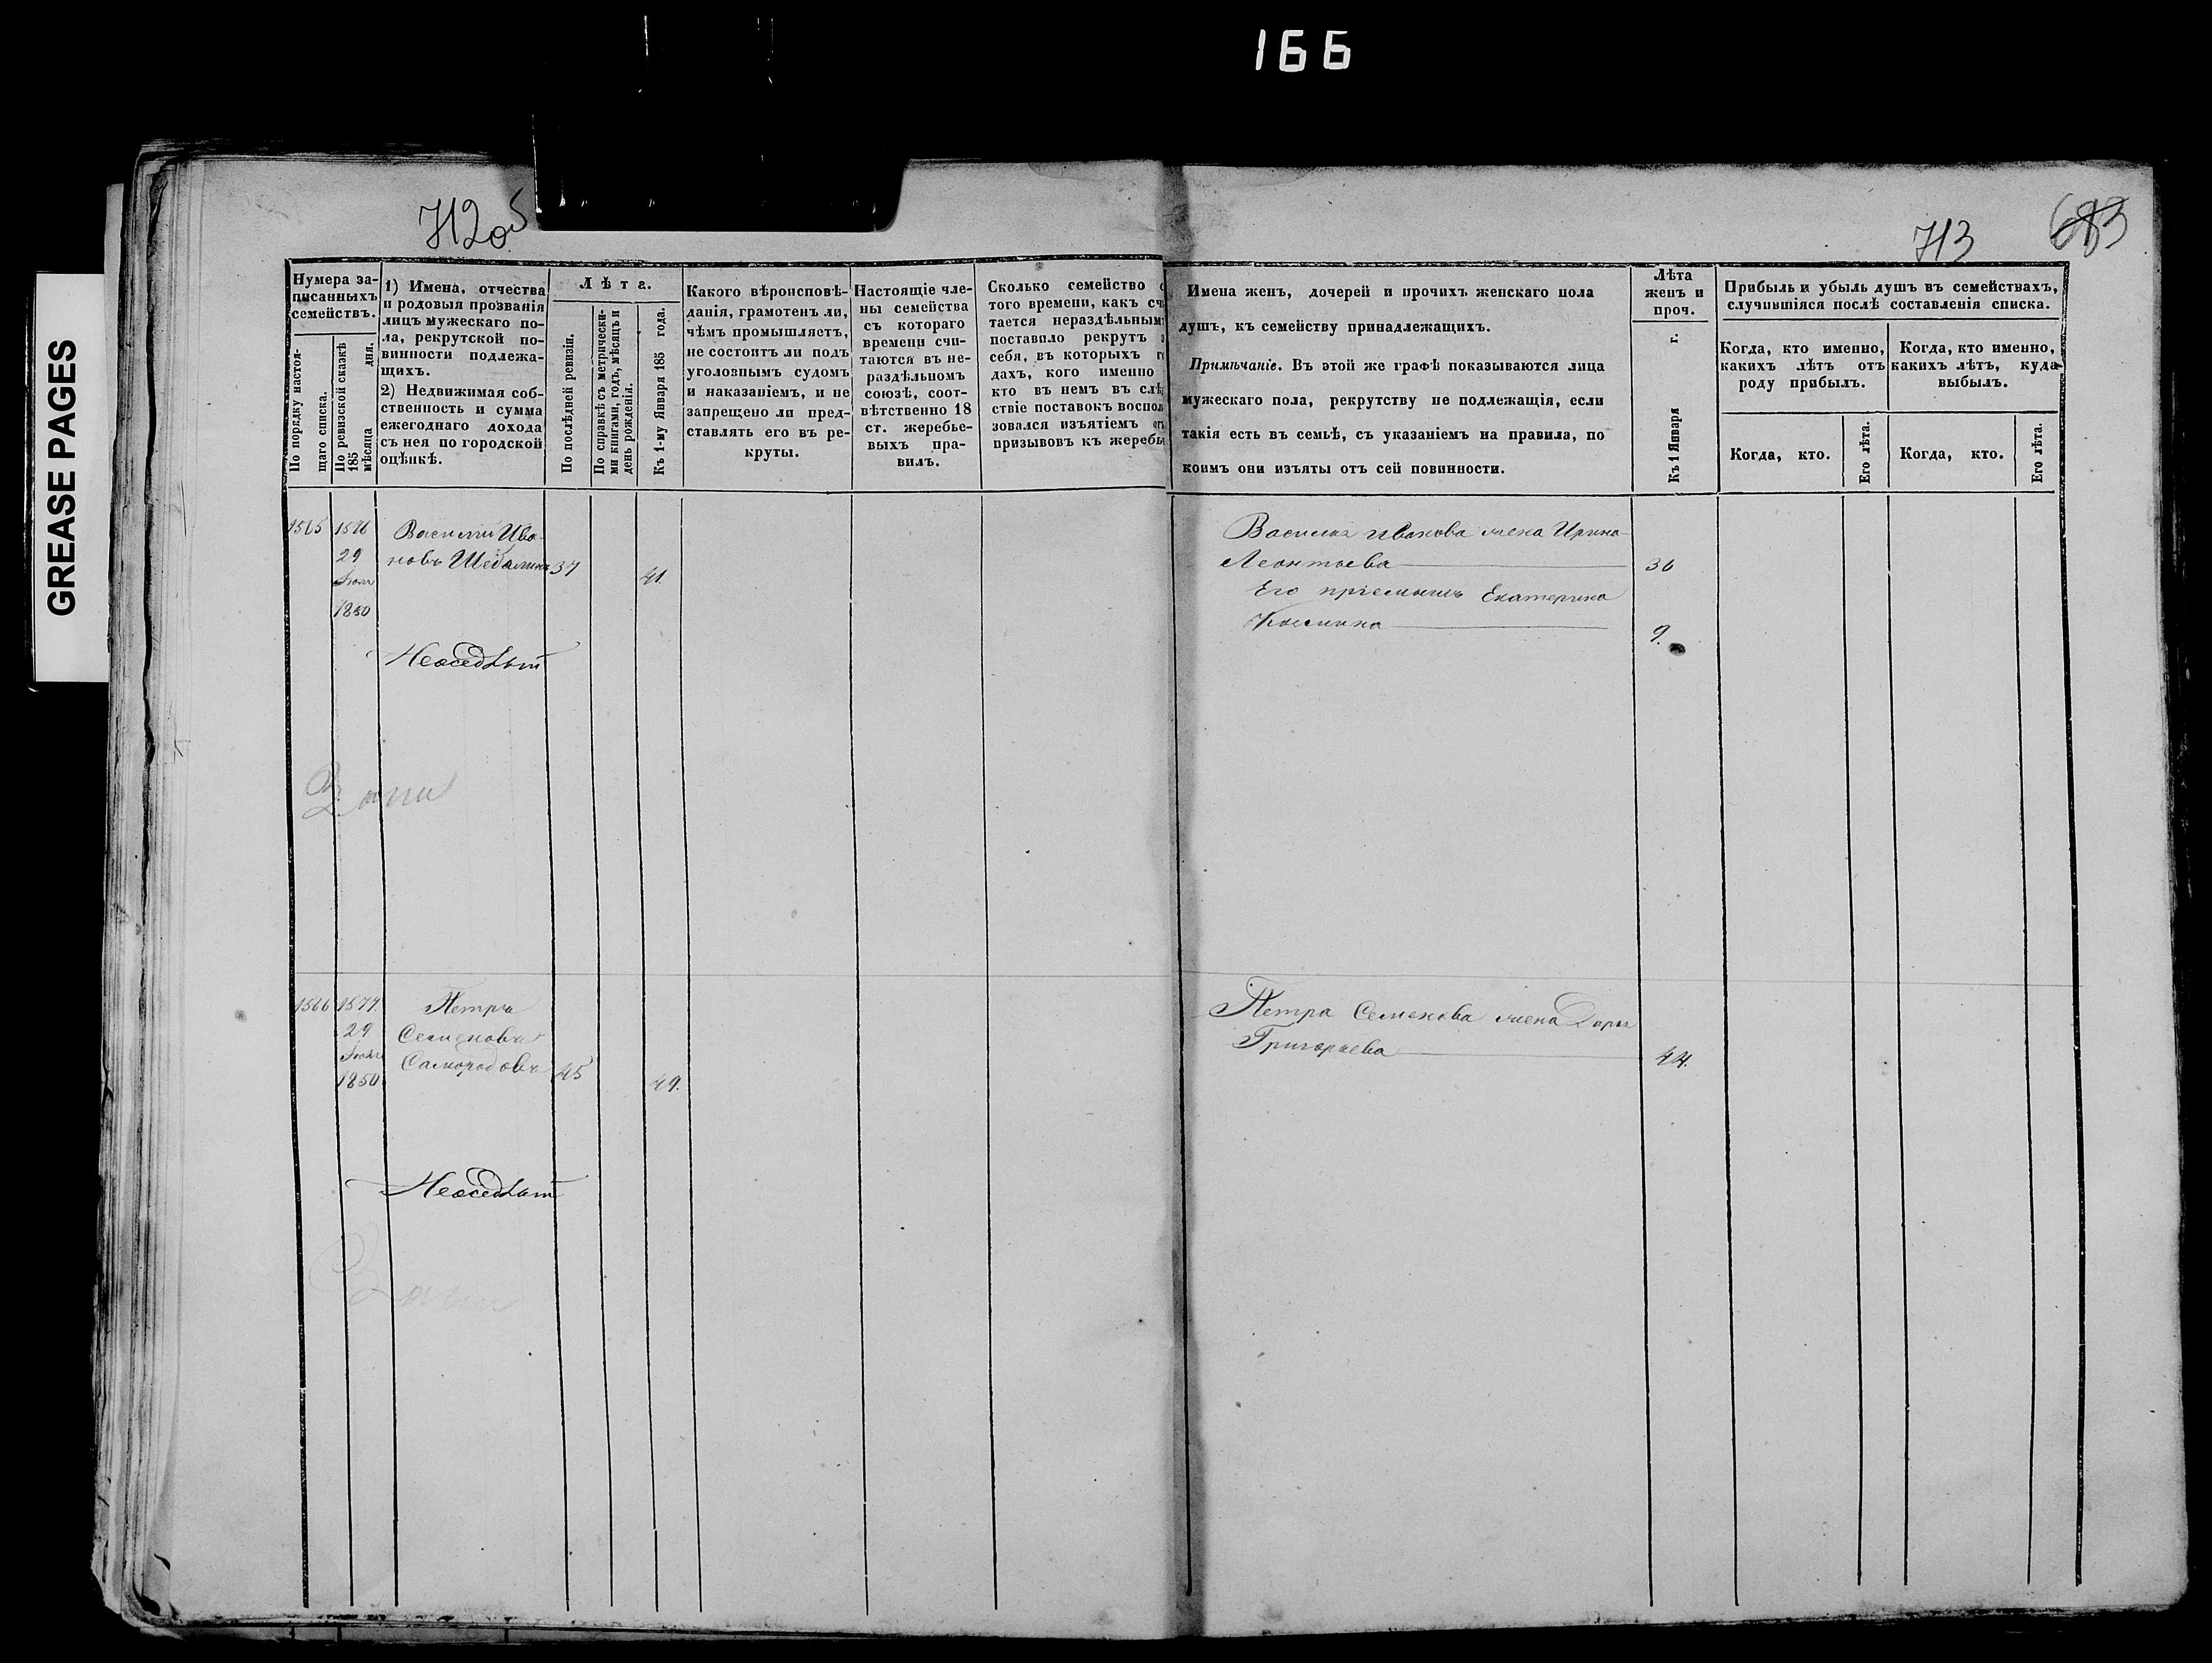 166
GREASE PAGES
712об
713
683
Нумера за-
писанныхъ
семействъ.
По порядку настоя-
щаго списка.
По ревизской сказкѣ
185
мѣсяца дня.
1) Имена, отчества
и родовыя прозванія
лицъ мужескаго по-
ла, рекрутской по-
винности подлежа-
щихъ.
2) Недвижимая соб-
ственность и сумма
ежегоднаго дохода
съ нея по городской
оцѣнкѣ.
Лѣта.
По послѣдней ревизіи.
По справкѣ съ метрически-
ми книгами, годъ, мѣсяцъ и
день рожденія.
Къ 1-му Января 185 года.
Какого вѣроисповѣ-
данія, грамотенъ ли,
чѣмъ промышляетъ,
не состоитъ ли подъ
уголовнымъ судомъ
и наказаніемъ, и не
запрещено ли пред-
ставлять его въ ре-
круты.
Настоящіе чле-
ны семейства
съ котораго
времени счи-
таются въ не-
раздѣльномъ
союзѣ, соот-
вѣтственно 18
ст. жеребье-
выхъ пра-
вилъ.
Сколько семейство с
того времени, какъ сч
тается нераздѣльным
поставило рекрутъ з
себя, въ которыхъ г
дахъ, кого именно
кто въ немъ въ слѣ
ствіе поставокъ воспол
зовался изъятіемъ от
призывовъ къ жеребь
Имена женъ, дочерей и прочихъ женскаго пола
душъ, къ семейству принадлежащихъ.
Примѣчаніе. Въ этой же графѣ показываются лица
мужескаго пола, рекрутству не подлежащія, если
такія есть въ семьѣ, съ указаніемъ на правила, по
коимъ они изъяты отъ сей повинности.
Лѣта
женъ и
проч.
Къ 1 Января г.
Прибыль и убыль душъ въ семействахъ,
случившіяся послѣ составленія списка.
Когда, кто именно,
какихъ лѣтъ отъ
роду прибылъ.
Когда, кто именно,
какихъ лѣтъ, куда
выбылъ.
Когда, кто.
Его лѣта.
Когда, кто.
Его лѣта.
1565
1576
29
Іюля
1850
Василій Ива-
новъ 37
41.
Неоседлый
Василья Иванова жена Ирина
Леонтьева 36
Его пріемышъ Екатерина
9.
1566
1577.
29
Іюля
1850
Петръ
Семеновъ
Самородовъ 45
49.
Неоседлый
Петра Семенова жена Дарья
Григорьева 44.